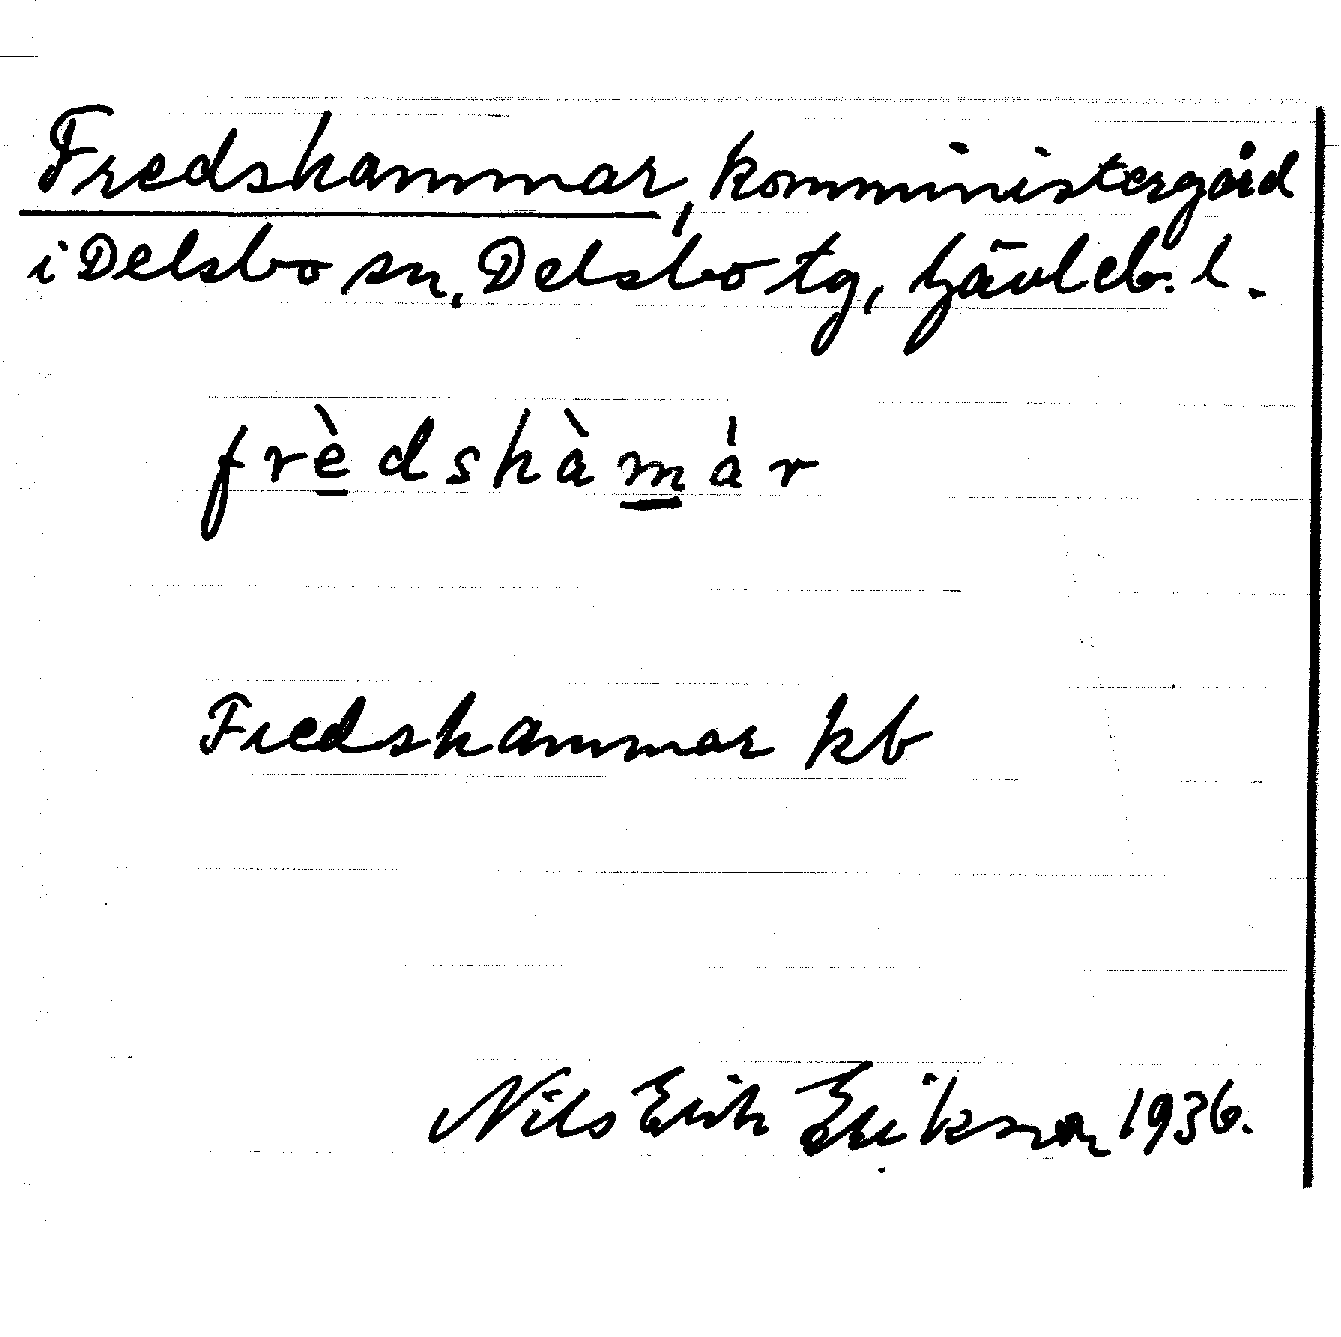 Fredshammar, komministergård
i Delsbo sn, Delsbo tg, Gävleb. l.
frèdshàmár
Fredshammar kb
Nils Erik Erikson 1936.